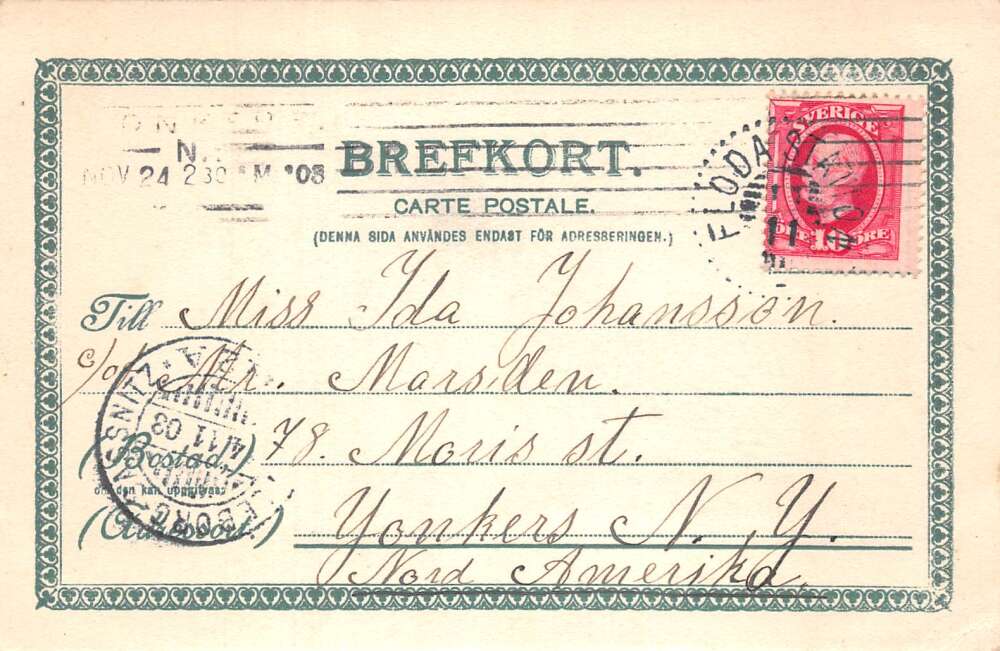 NOV 24 2 30
BREFKORT.
CARTE POSTALE.
(DENNA SIDA ANVÄNDES ENDAST FÖR ADRESSERINGEN.)
SVERIGE
10
ÖRE
FLODA
11
Till Miss Ida Johansson.
c/o Mr. Marsden.
SASSNITZ
4/11 03
(Bostad) 78. Moris st.
om den kan uppgifvas:
Yonkers N. Y.
Nord Amerika.